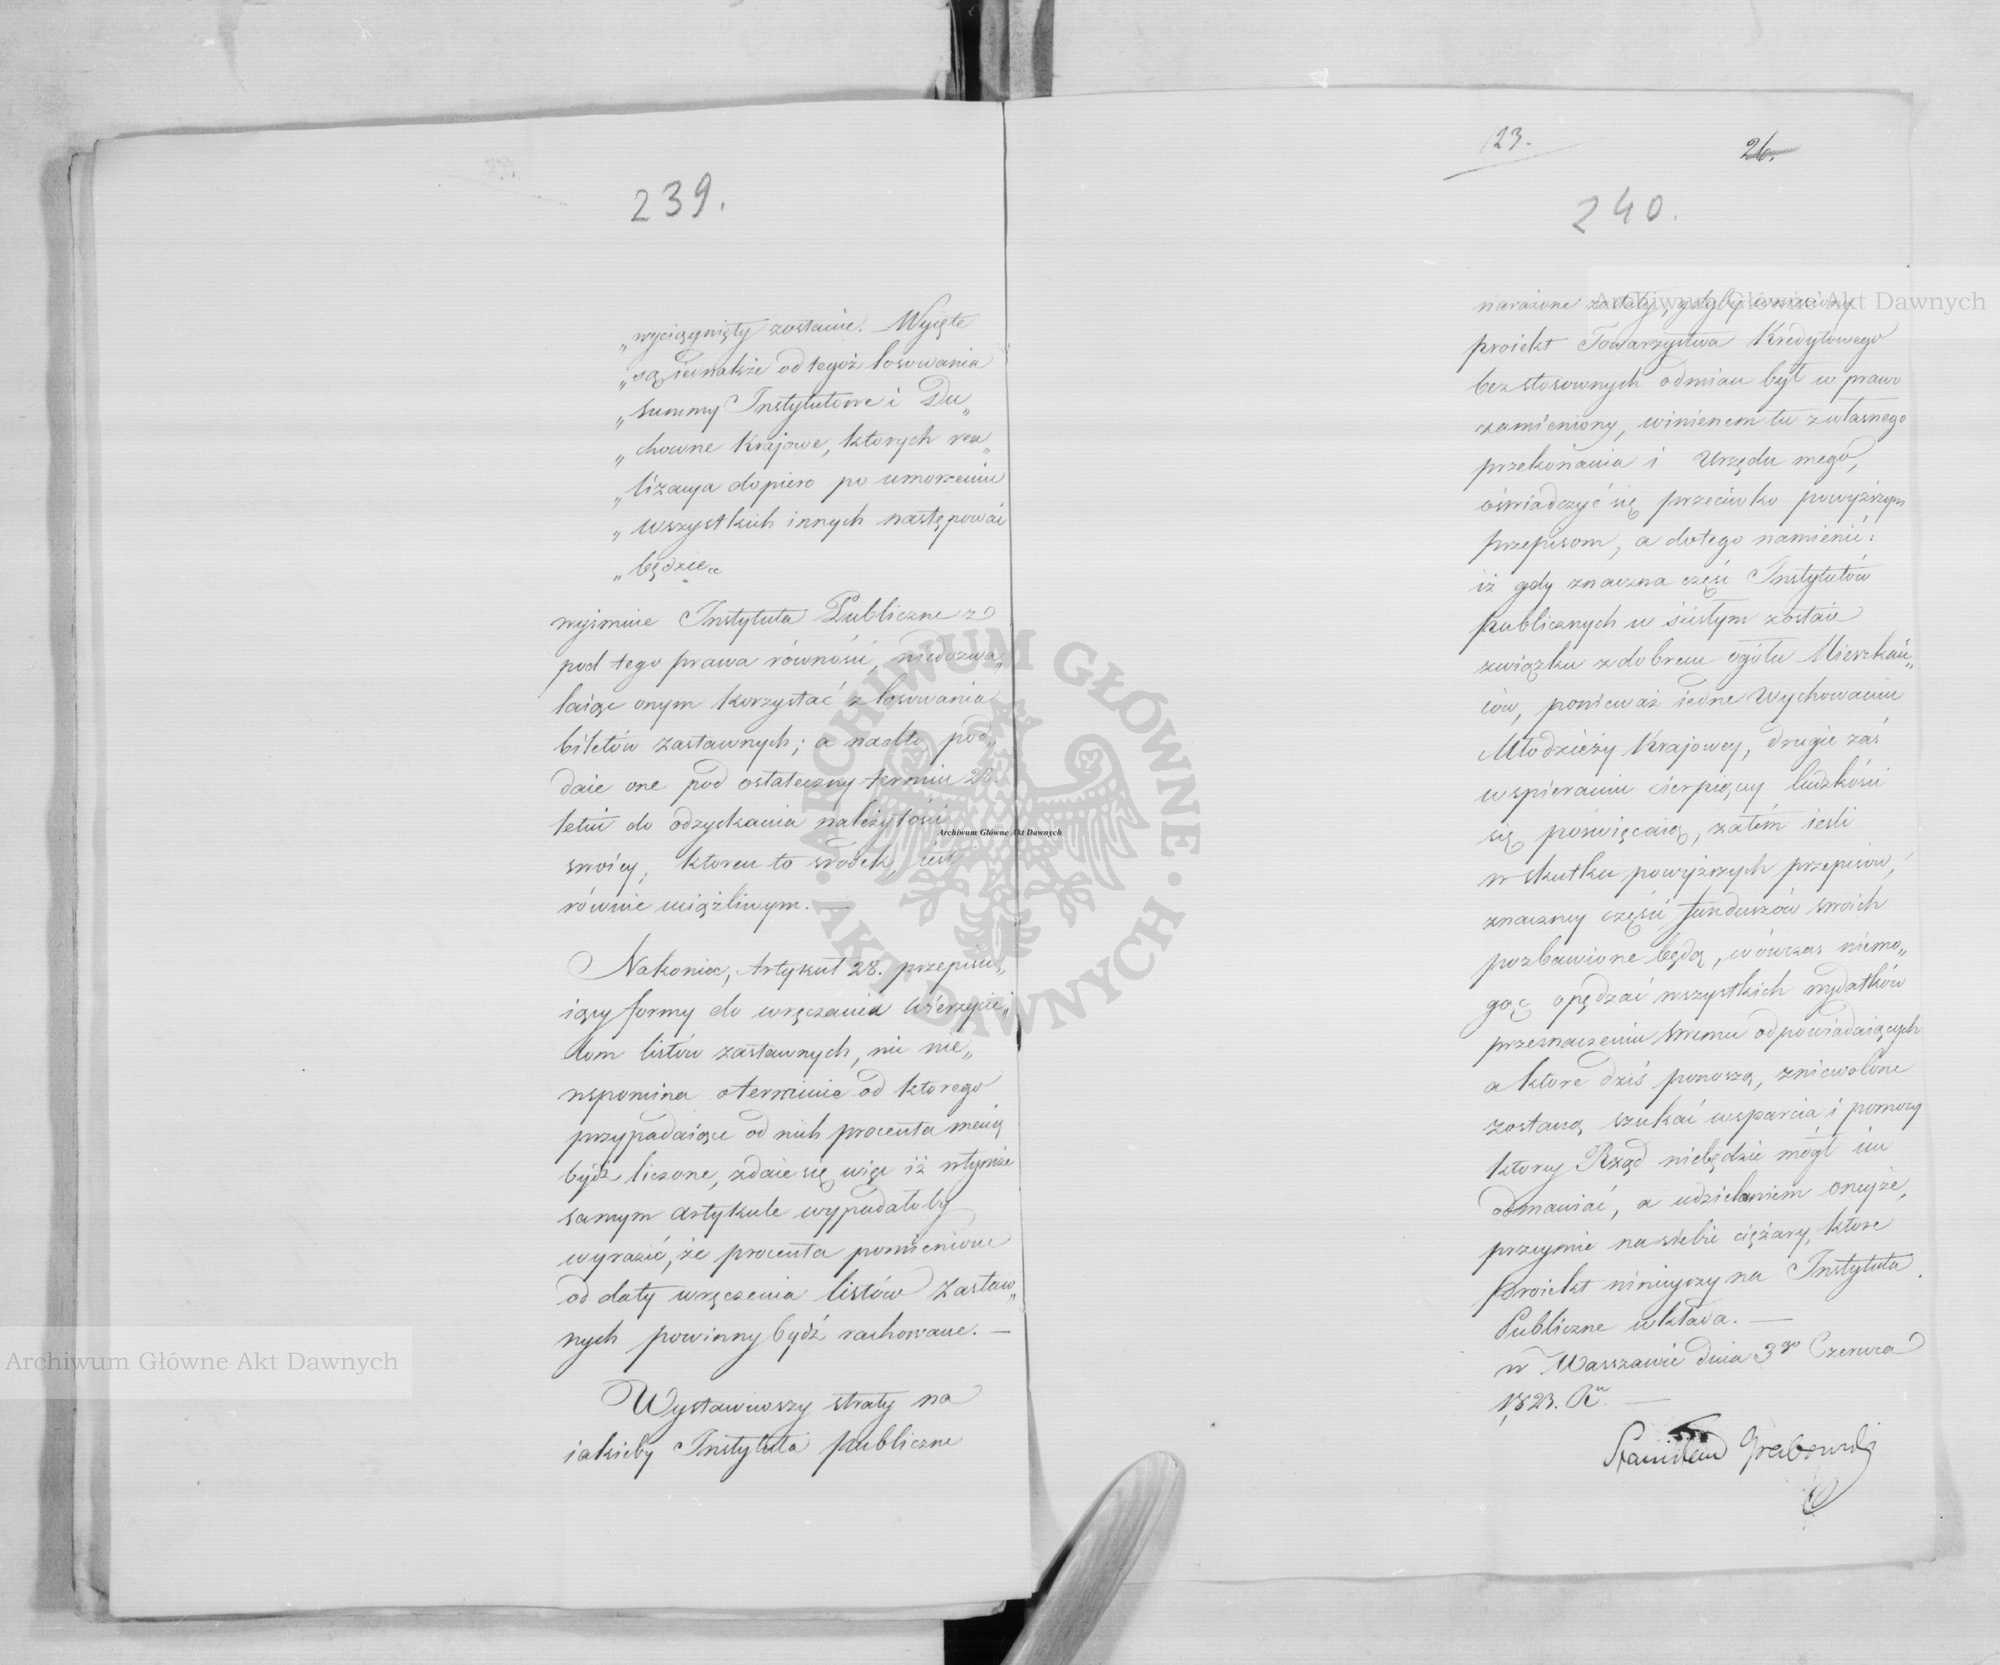 239.
„wyciągnięty zostanie. Wyięte
„są iednakże od tegoż losowania
„summy Instytutowe i Du„
„chowne Krajowe, których rea„
„lizacya dopiero po umorzeniu
„wszystkich innych następować
„będzie„
wyimuie Instytuta Publiczne z
pod tego prawa równości, niedozwa„
laiąc onym korzystać z losowania
biletów zastawnych; a nadto pod„
daie one pod ostateczny termin 28.
letni do odzyskania należytości
swoiey, któren to środek, iest
równie uciążliwym. —
Nakoniec, Artykuł 28. przepisu„
iący formy do wręczania wierzycie„
lom listów zastawnych, nic nie„
wspomina o terminie od którego
przypadaiące od nich procenta maią
bydź liczone, zdaie się więc iż w tymże
samym artykule wypadałoby
wyrazić, że procenta pomienione
od daty wręczenia listów zastaw„
nych powinny bydź rachowane. —
Wystawiwszy straty na
iakieby Instytuta publiczne
23.
26.
240.
narażone zostały, gdyby
proiekt Towarzystwa Kredytowego
bez stosownych odmian był w prawo
zamieniony, winienem tu z własnego
przekonania i Urzędu mego,
oświadczyć się przeciwko powyższym
przepisom, a do tego namienić:
iż gdy znaczna część Instytutów
publicznych w ścisłym zostaie
związku z dobrem ogółu Mieszkań„
ców, ponieważ iedne wychowaniu
Młodzieży Krajowey, drugie zaś
wspieraniu cierpiącey ludzkości
się poświęcaią, zatém ieśli
w skutku powyższych przepisów,
znaczney części funduszów swoich
pozbawione będą, wówczas niemo„
gąc opędzać wszystkich wydatków
przeznaczeniu swemu odpowiadaiących
a które dziś ponoszą, zniewolone
zostaną szukać wsparcia i pomocy
którey Rząd niebędzie mógł im
odmawiać, a udzielaniem oneyże,
przyymie na siebie ciężary, które
proiekt ninieyszy na Instytuta
Publiczne wkłada. —
w Warszawie dnia 3go Czerwca
1823. Ru. —
Stanisław Grabowski
Archiwum Główne Akt Dawnych
Archiwum Główne Akt Dawnych
Archiwum Główne Akt Dawnych
ARCHIWUM GŁÓWNE · AKT DAWNYCH ·